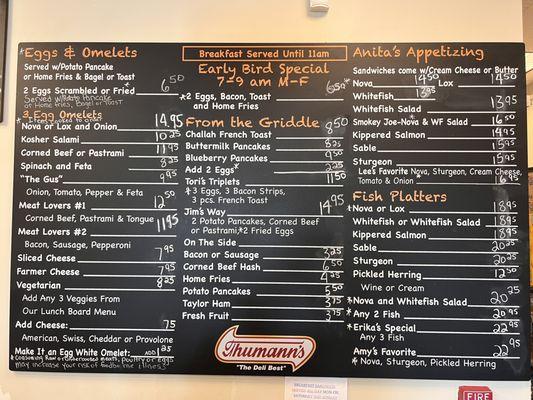 *Eggs & Omelets
Served w/Potato Pancake
or Home Fries & Bagel or Toast
2 Eggs Scrambled or Fried 6 50
Served w/Potato Pancake
or Home fries, Bagel or Toast
3 Egg Omelets
* Items cooked to order
Nova or Lox and Onion 14 95
Kosher Salami 10 25
Corned Beef or Pastrami 11 95
Spinach and Feta 8 25
"The Gus" 9 95
Onion, Tomato, Pepper & Feta
Meat Lovers #1 12 50
Corned Beef, Pastrami & Tongue
Meat Lovers #2 11 95
Bacon, Sausage, Pepperoni
Sliced Cheese 7 95
Farmer Cheese 7 95
Vegetarian 8 25
Add Any 3 Veggies From
Our Lunch Board Menu
Add Cheese: 75
American, Swiss, Cheddar or Provolone
Make It an Egg White Omelet: ADD 1 25
* Consuming raw or undercooked meats, poultry or eggs
may increase your risk of foodborne illness
Breakfast Served Until 11am
Early Bird Special
7-9 am M-F
*2 Eggs, Bacon, Toast 6 50
and Home Fries
From the Griddle
Challah French Toast 8 50
Buttermilk Pancakes 8 25
Blueberry Pancakes 9 50
Add 2 Eggs* 2 25
Tori's Triplets 11 50
* 3 Eggs, 3 Bacon Strips,
3 pcs. French Toast
Jim's Way 14 95
2 Potato Pancakes, Corned Beef
or Pastrami,*2 Fried Eggs
On The Side
Bacon or Sausage 3 25
Corned Beef Hash 6 50
Home Fries 4 25
Potato Pancakes 5 50
Taylor Ham 3 75
Fresh Fruit 3 75
Thumann's
"The Deli Best"
Anita's Appetizing
Sandwiches come w/Cream Cheese or Butter
*Nova 14 50 Lox 14 50
Whitefish 13 95
Whitefish Salad 13 95
Smokey Joe-Nova* & WF Salad 16 50
Kippered Salmon 14 95
Sable 15 95
Sturgeon 15 95
Lee's Favorite Nova, Sturgeon, Cream Cheese,
Tomato & Onion 16 95
Fish Platters
*Nova or Lox 18 95
Whitefish or Whitefish Salad 18 95
Kippered Salmon 18 95
Sable 20 25
Sturgeon 20 25
Pickled Herring 12 50
Wine or Cream
*Nova and Whitefish Salad 20 25
*Any 2 Fish 20 95
*Erika's Special 22 95
Any 3 Fish
Amy's Favorite 22 95
* Nova, Sturgeon, Pickled Herring
FIRE